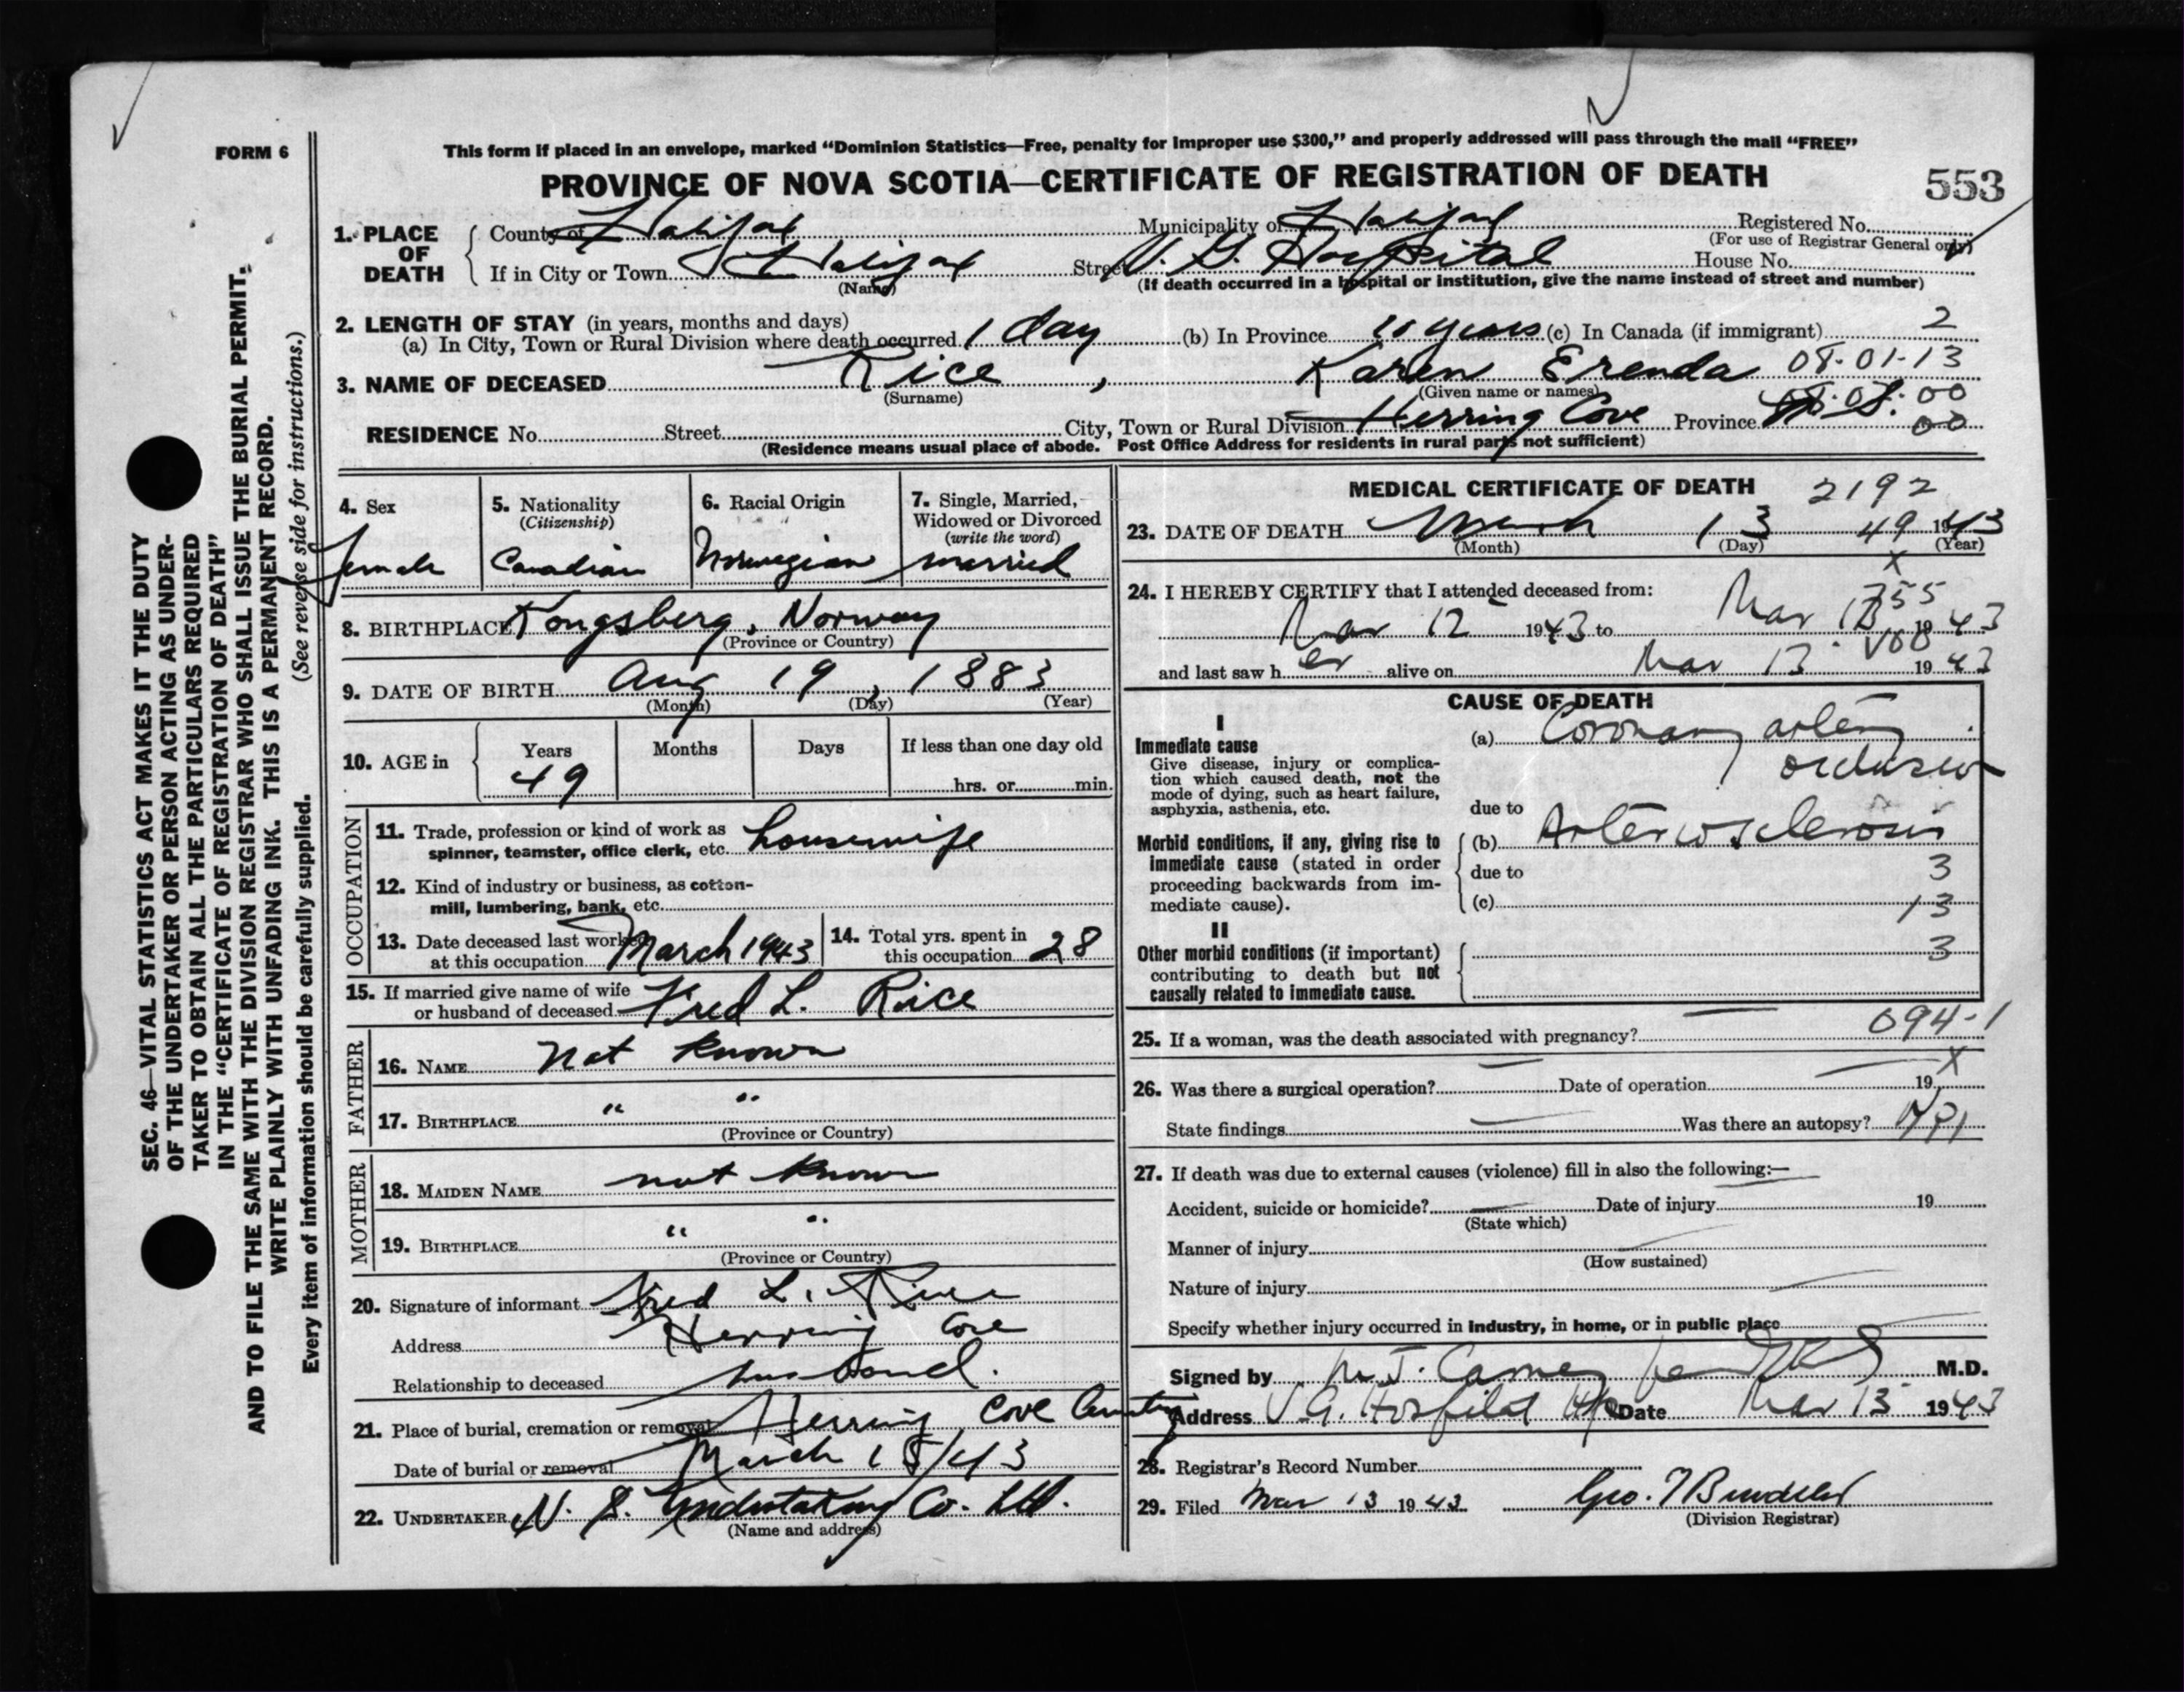 FORM 6
This form if placed in an envelope, marked “Dominion Statistics—Free, penalty for improper use $300,” and properly addressed will pass through the mail “FREE”
PROVINCE OF NOVA SCOTIA—CERTIFICATE OF REGISTRATION OF DEATH
553
1. PLACE OF DEATH
County of Halifax Municipality of Halifax Registered No.
(For use of Registrar General only)
If in City or Town Halifax Street V. G. Hospital House No.
(Name) (If death occurred in a hospital or institution, give the name instead of street and number)
2. LENGTH OF STAY (in years, months and days)
(a) In City, Town or Rural Division where death occurred 1 day (b) In Province years (c) In Canada (if immigrant) 2
3. NAME OF DECEASED Rice, Karen Erenda 08-01-13
(Surname) (Given name or names)
RESIDENCE No. Street City, Town or Rural Division Herring Cove Province 00
00
(Residence means usual place of abode. Post Office Address for residents in rural parts not sufficient)
4. Sex
female
5. Nationality
(Citizenship)
Canadian
6. Racial Origin
Norwegian
7. Single, Married,
Widowed or Divorced
(write the word)
married
8. BIRTHPLACE Kongsberg, Norway
(Province or Country)
9. DATE OF BIRTH Aug 19, 1883
(Month) (Day) (Year)
10. AGE in Years Months Days If less than one day old
49 hrs. or min.
OCCUPATION
11. Trade, profession or kind of work as
spinner, teamster, office clerk, etc. housewife
12. Kind of industry or business, as cotton-
mill, lumbering, bank, etc.
13. Date deceased last worked
at this occupation March 1943
14. Total yrs. spent in
this occupation 28
15. If married give name of wife
or husband of deceased Fred L. Rice
FATHER
16. NAME not known
17. BIRTHPLACE " "
(Province or Country)
MOTHER
18. MAIDEN NAME not known
19. BIRTHPLACE " "
(Province or Country)
20. Signature of informant Fred L. Rice
Address Herring Cove
Relationship to deceased husband.
21. Place of burial, cremation or removal Herring Cove
Date of burial or removal March 15/43
22. UNDERTAKER N. S. Undertaking Co. Ltd.
(Name and address)
MEDICAL CERTIFICATE OF DEATH
2192
23. DATE OF DEATH March 13 49 1943
(Month) (Day) (Year)
x
24. I HEREBY CERTIFY that I attended deceased from:
355
Mar 12 1943 to Mar 13 1943
and last saw her alive on Mar 13 1943
CAUSE OF DEATH
I
Immediate cause
Give disease, injury or complica-
tion which caused death, not the
mode of dying, such as heart failure,
asphyxia, asthenia, etc.
(a) Coronary artery
occlusion
due to
Morbid conditions, if any, giving rise to
immediate cause (stated in order
proceeding backwards from im-
mediate cause).
(b) Arteriosclerosis
due to 3
(c) 13
II
Other morbid conditions (if important)
contributing to death but not
causally related to immediate cause.
3
094-1
25. If a woman, was the death associated with pregnancy? —
x
26. Was there a surgical operation? — Date of operation — 19
State findings — Was there an autopsy?
27. If death was due to external causes (violence) fill in also the following:—
Accident, suicide or homicide? — Date of injury 19
(State which)
Manner of injury
(How sustained)
Nature of injury
Specify whether injury occurred in Industry, in home, or in public place
Signed by M. D.
Address V.G. Hospital Hfx Date Mar 13 1943
28. Registrar's Record Number
29. Filed Mar 13 1943
(Division Registrar)
SEC. 46—VITAL STATISTICS ACT MAKES IT THE DUTY
OF THE UNDERTAKER OR PERSON ACTING AS UNDER-
TAKER TO OBTAIN ALL THE PARTICULARS REQUIRED
IN THE “CERTIFICATE OF REGISTRATION OF DEATH”
AND TO FILE THE SAME WITH THE DIVISION REGISTRAR WHO SHALL ISSUE THE BURIAL PERMIT.
WRITE PLAINLY WITH UNFADING INK. THIS IS A PERMANENT RECORD.
Every item of information should be carefully supplied. (See reverse side for instructions.)